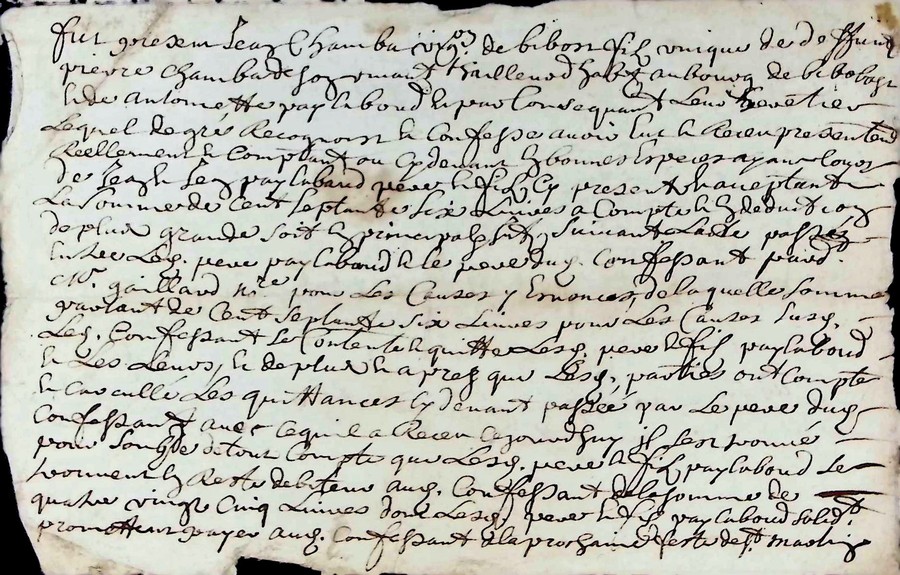 fut present Jean Chamba vign.on de bibost fils unique de deffunct
pierre Chamba de son vivant tailleur d habit au bourg de bibost
& de Antoinette paylaboud & par Consequant Leur heretier
Lequel de gré Recognoist & Confesse avoir Eu & Receu presentem.t
Reellement & Comptant ou Cy devant En bonnes Especes ayant Cours
de Jean & Jean paylaboud pere & fils Cy present & aceptant
La somme de Cent septante six Livres a Compte & En deduction
de plus grande soit En principal suivant L acte passé
Entre Les.. pere paylaboud & le pere du.. Confessant pard.t
M.r gaillard n.re pour Les Causes y Enoncés, de laquelle somme
partant de Cent septante six Livres pour Les Causes susd..
Led. Confessant se Contente & quitte Lesd. pere & fils paylaboud
& Les Leurs, & de plus & apres que Lesd. parties ont Compté
& Calcullé Les quittances Cy devant passée par Le pere dud.
Confessant avec Ce qu il a Receu Cejourdhuy il s est trouvé
pour solde de tout Compte que Lesd. pere & fils paylaboud se
trouvent En Reste debiteur aud. Confessant de la somme de
quatre vingt Cinq Livres dont Lesd. pere & fils paylaboud solid.t
promettent payer aud. Confessant a la prochaine feste de s.t martin